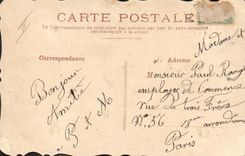 CARTE POSTALE
La Correspondance au recto n'est pas acceptée par tous les pays étrangers
(Se renseigner à la Poste)
Correspondance
Adresse
Madame et
Monsieur Paul
employer de Commerce
Rue des trois Frères
No. 56 18me arrondiss
Paris
Bonjour
Amitié
P et M